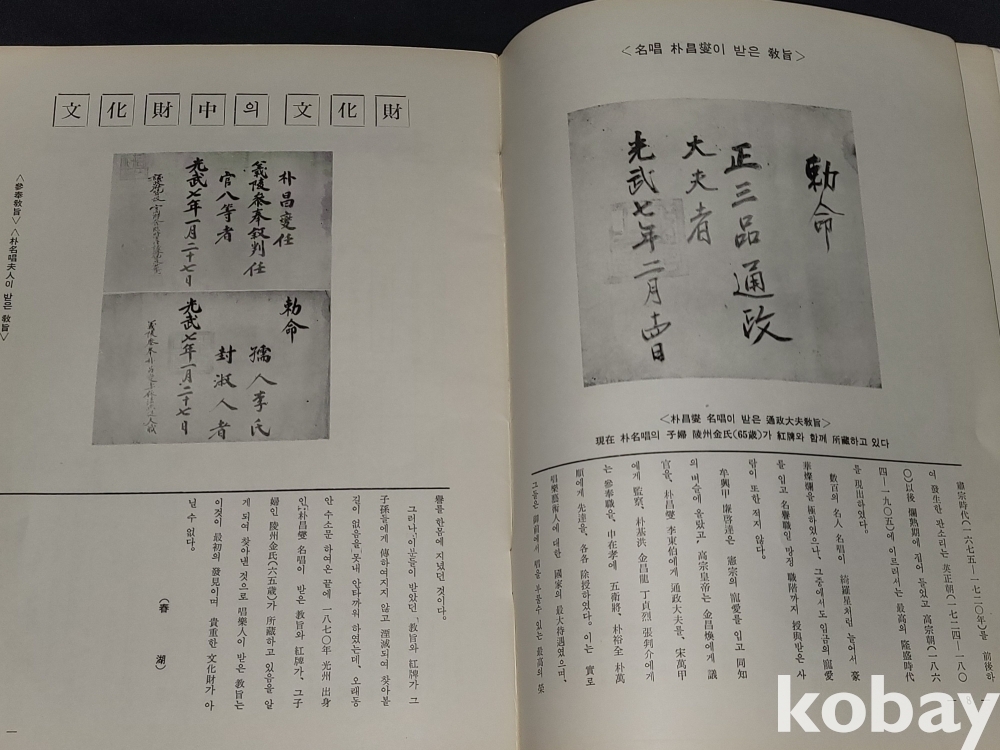 ＜名唱 朴昌燮이 받은 敎旨＞
勅命
正三品通政
大夫者
光武七年二月
＜朴昌燮 名唱이 받은 通政大夫敎旨＞
現在 朴名唱의 子婦 陵州金氏(65歲)가 紅牌와 함께 所藏하고 있다
憲宗時代(一六七五—一七二○年)를 前後하
여 發生한 판소리는 英正朝(一七二四—一八○
○)以後 爛熟期에 접어 들었고 高宗朝(一八六
四—一九○五)에 이르러서는 最高의 隆盛時代
를 現出하였다.
數百의 名人 名唱이 綺羅星처럼 늘어서 豪
華燦爛을 極하였으나、그중에서도 임금의 寵愛
를 입고 名譽職일 망정 職階까지 授與받은 사
람이 또한 적지 않다.
牟興甲 廉啓達은 憲宗의 寵愛를 입고 同知
의 벼슬에 올랐고、高宗皇帝는 金昌煥에게 議
官을、朴昌燮 李東伯에게 通政大夫를、宋萬甲
에게 監察、朴基洪 金昌龍 丁貞烈 張判介에게
는 參奉職을、申在孝에 五衛將、朴裕全 朴萬
順에게 先達을、各各 除授하였다. 이는 實로
唱樂藝術人에 대한 國家의 最大待遇였으며、
그들은 御前에서 唱을 부를수 있는 最高의 榮
文化財中의 文化財
朴昌燮任
義陵參奉叙判任
官八等者
光武七年一月二十七日
勅命
孺人李氏
封淑人者
光武七年一月二十七日
＜參奉敎旨＞＜朴名唱夫人이 받은 敎旨＞
譽를 한몸에 지녔던 것이다.
그러나、이분들이 받았던 「敎旨와 紅牌가 그
子孫들에게 傳하여지지 않고 湮滅되여 찾아볼
길이 없음을 못내 안타까워 하였는데、오래동
안 수소문 하여온 끝에 一八七○年 光州 出身
인 朴昌燮 名唱이 받은 敎旨와 紅牌가、그 子
婦인 陵州金氏(六五歲)가 所藏하고 있음을 알
게 되여 찾아낸 것으로 唱樂人이 받은 敎旨는
이것이 最初의 發見이며 貴重한 文化財가 아
닐 수 없다.
(春 湖)
kobay